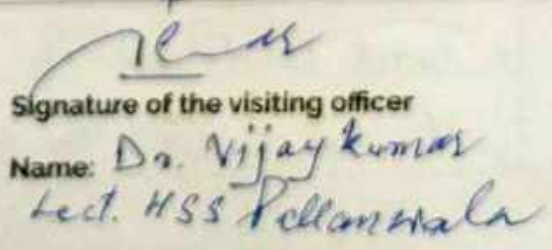 Signature of the visiting officer
Name: Dr. Vijay Kumar
Lect. HSS Pallanwala